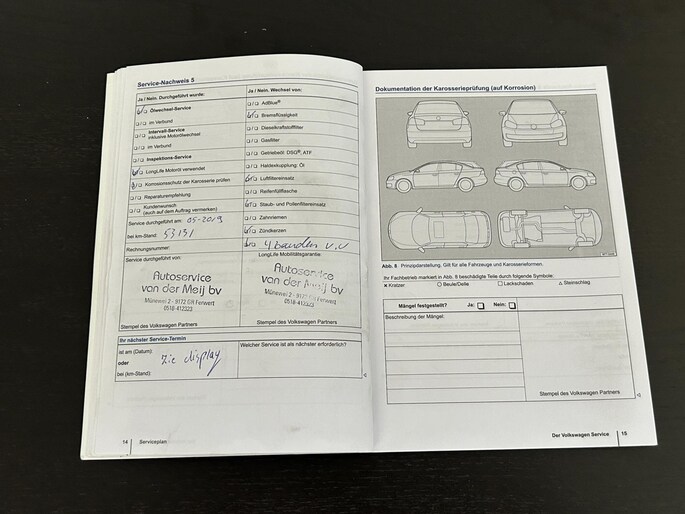 Service-Nachweis 5
Ja / Nein. Durchgeführt wurde:
Ölwechsel-Service
im Verbund
Intervall-Service
inklusive Motorölwechsel
im Verbund
Inspektions-Service
LongLife Motoröl verwendet
Korrosionsschutz der Karosserie prüfen
Reparaturempfehlung
Kundenwunsch
(auch auf dem Auftrag vermerken)
Service durchgeführt am: 05-2019
bei km-Stand: 53131
Rechnungsnummer:
Service durchgeführt von:
Autoservice
van der Meij bv
Mûnewei 2 - 9172 GR Ferwert
0518-412323
Stempel des Volkswagen Partners
Ja / Nein. Wechsel von:
AdBlue®
Bremsflüssigkeit
Dieselkraftstofffilter
Gasfilter
Getriebeöl DSG®, ATF
Haldexkupplung: Öl
Luftfiltereinsatz
Reifenfüllflasche
Staub- und Pollenfiltereinsatz
Zahnriemen
Zündkerzen
4 banden V.V
LongLife Mobilitätsgarantie:
Autoservice
van der Meij bv
Mûnewei 2 - 9172 GR Ferwert
0518-412323
Stempel des Volkswagen Partners
Ihr nächster Service-Termin
ist am (Datum):
oder
bei (km-Stand):
Zie display
Welcher Service ist als nächster erforderlich?
14 Serviceplan
Dokumentation der Karosserieprüfung (auf Korrosion)
Abb. 8 Prinzipdarstellung. Gilt für alle Fahrzeuge und Karosserieformen.
Ihr Fachbetrieb markiert in Abb. 8 beschädigte Teile durch folgende Symbole:
× Kratzer ○ Beule/Delle □ Lackschaden △ Steinschlag
Mängel festgestellt? Ja: Nein:
Beschreibung der Mängel:
Stempel des Volkswagen Partners
Der Volkswagen Service 15